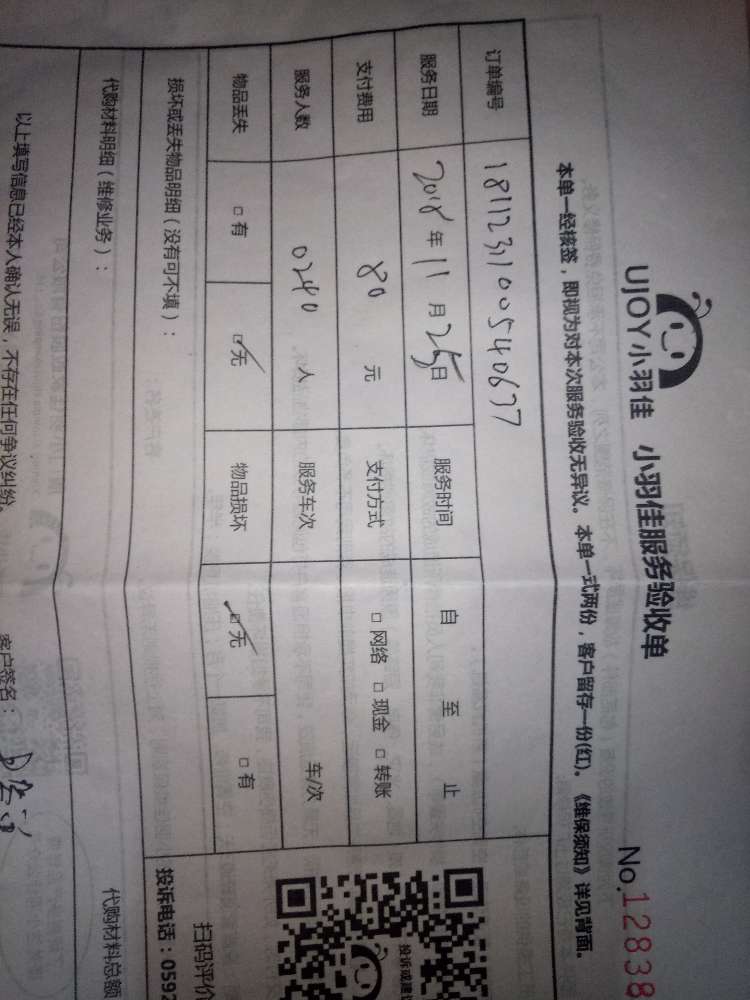 UJOY小羽佳 小羽佳服务验收单 No.12838
本单一经核签，即视为对本次服务验收无异议。本单一式两份，客户留存一份(红)。《维保须知》详见背面。
订单编号 181123100540637
服务日期 2018年11月25日 服务时间 自 至 止
支付费用 80 元 支付方式 □网络 □现金 □转账
服务人数 0240 人 服务车次 车/次
物品丢失 □有 □无 物品损坏 □无 □有
损坏或丢失物品明细（没有可不填）：
代购材料明细（维修业务）： 代购材料总额
以上填写信息已经本人确认无误，不存在任何争议纠纷。 客户签名：
投诉或建议
扫码评价
投诉电话：0592